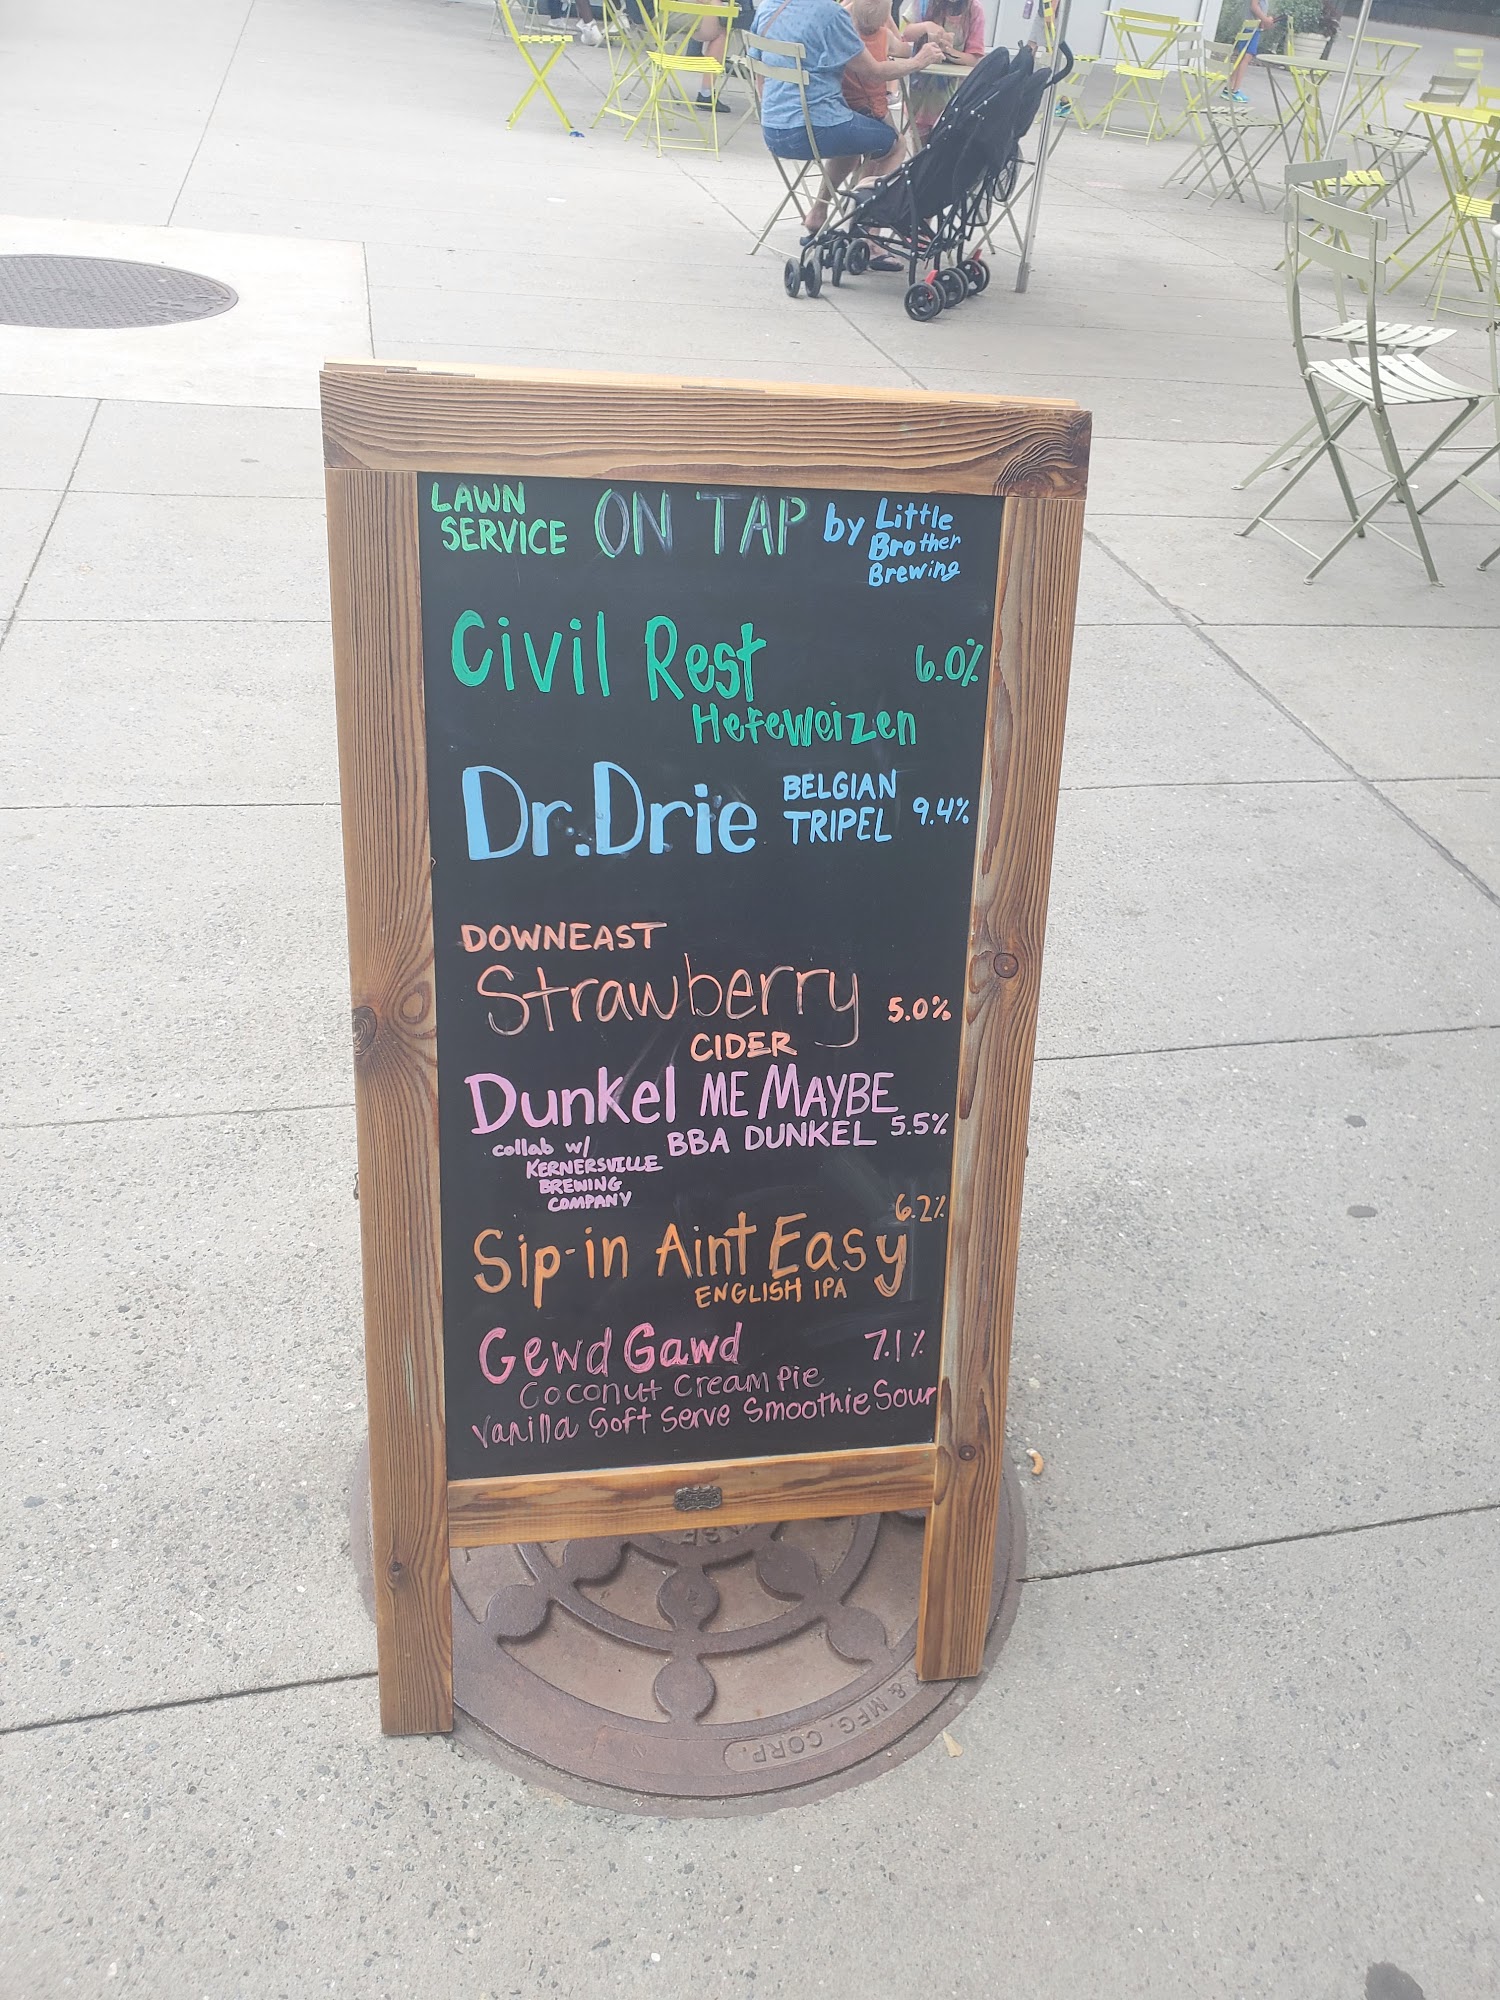 LAWN SERVICE ON TAP by Little Brother Brewing
Civil Rest 6.0%
Hefeweizen
Dr. Drie BELGIAN TRIPEL 9.4%
DOWNEAST
Strawberry 5.0%
CIDER
Dunkel ME MAYBE
BBA DUNKEL 5.5%
collab w/
KERNERSVILLE
BREWING
COMPANY
6.2%
Sip-in Aint Easy
ENGLISH IPA
Gewd Gawd 7.1%
Coconut Cream Pie
Vanilla Soft Serve Smoothie Sour
& MFG. CORP.